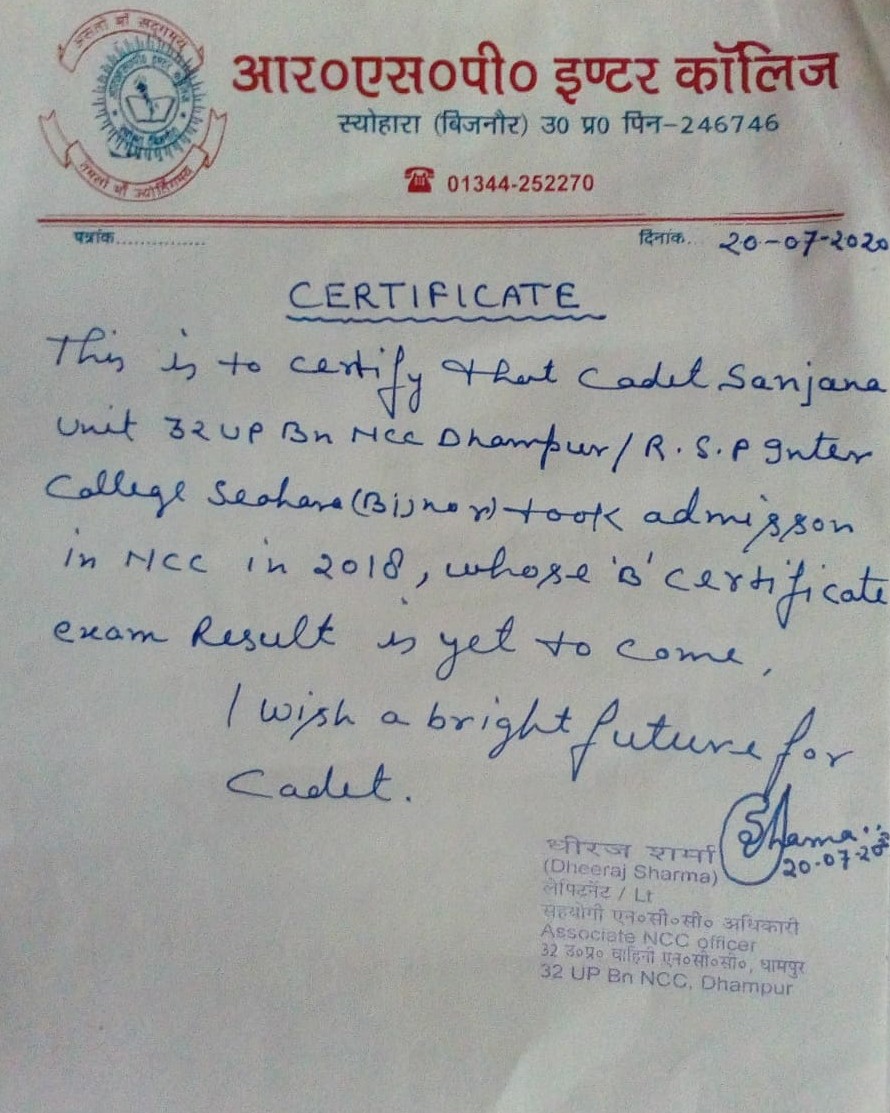 असतो माँ सद्गमय
आर०एस०पी० इण्टर कॉलिज
स्योहारा (बिजनौर) उ0 प्र0 पिन-246746
तमसो माँ ज्योर्तिगमय
01344-252270
पत्रांक...............
दिनांक... 20-07-2020
CERTIFICATE
This is to certify that Cadet Sanjana
Unit 32 UP Bn NCC Dhampur/R.S.P Inter
College Seohara (Bijnor) took admisson
in NCC in 2018, whose 'B' certificate
exam Result is yet to come,
I wish a bright future for
Cadet.
Sharma
20-07-20
धीरज शर्मा
(Dheeraj Sharma)
लेफ्टिनेंट / Lt
सहयोगी एन०सी०सी० अधिकारी
Associate NCC officer
32 उ०प्र० वाहिनी एन०सी०सी०, धामपुर
32 UP Bn NCC, Dhampur